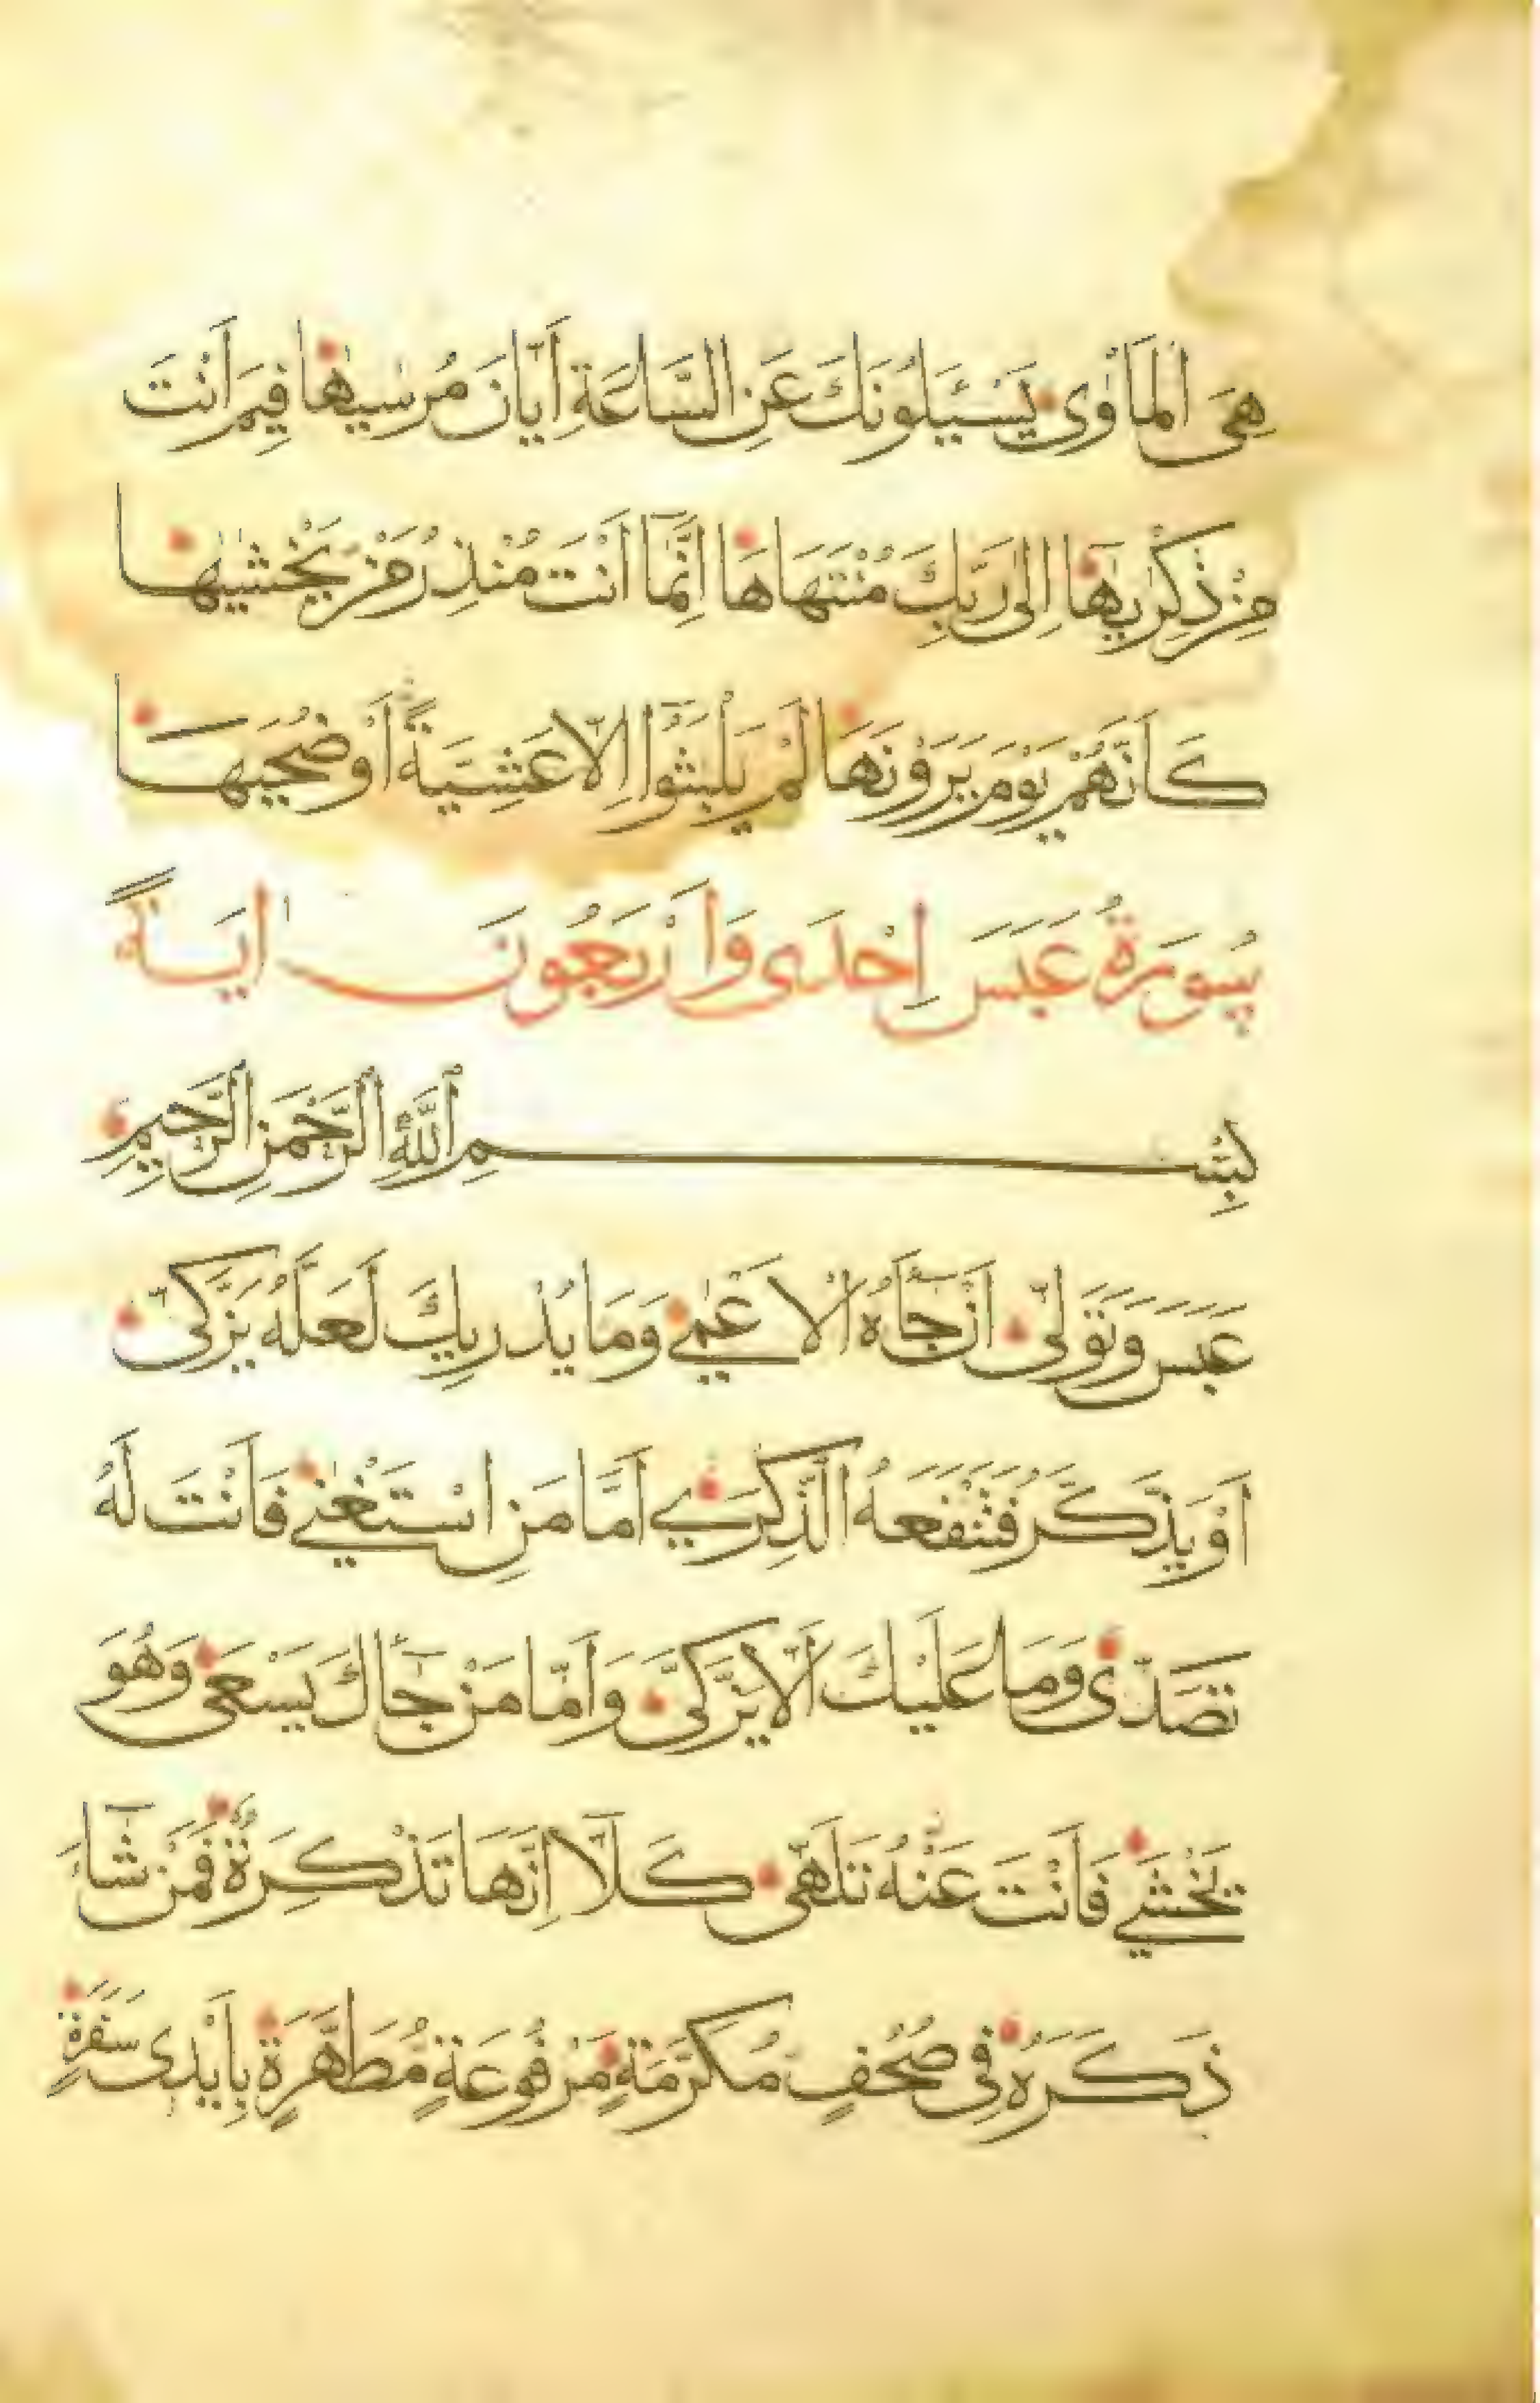 هِيَ الْمَأْوٰى يَسْئَلُونَكَ عَنِ السَّاعَةِ أَيَّانَ مُرْسٰيهَا فِيمَ أَنْتَ
مِنْ ذِكْرٰيهَا إِلٰى رَبِّكَ مُنْتَهَاهَا إِنَّمَا أَنْتَ مُنْذِرُ مَنْ يَخْشٰيهَا
كَأَنَّهُمْ يَوْمَ يَرَوْنَهَا لَمْ يَلْبَثُوا إِلَّا عَشِيَّةً أَوْ ضُحٰيهَا
سُورَةُ عَبَسَ إِحْدَى وَأَرْبَعُونَ اٰيَةً
بِسْمِ اللَّهِ الرَّحْمَنِ الرَّحِيمِ
عَبَسَ وَتَوَلّٰى أَنْ جَاءَهُ الْأَعْمٰى وَمَا يُدْرِيكَ لَعَلَّهُ يَزَّكّٰى
أَوْ يَذَّكَّرُ فَتَنْفَعَهُ الذِّكْرٰى أَمَّا مَنِ اسْتَغْنٰى فَأَنْتَ لَهُ
تَصَدّٰى وَمَا عَلَيْكَ أَلَّا يَزَّكّٰى وَأَمَّا مَنْ جَاءَكَ يَسْعٰى وَهُوَ
يَخْشٰى فَأَنْتَ عَنْهُ تَلَهّٰى كَلَّا إِنَّهَا تَذْكِرَةٌ فَمَنْ شَاءَ
ذَكَرَهُ فِي صُحُفٍ مُكَرَّمَةٍ مَرْفُوعَةٍ مُطَهَّرَةٍ بِأَيْدِي سَفَرَةٍ